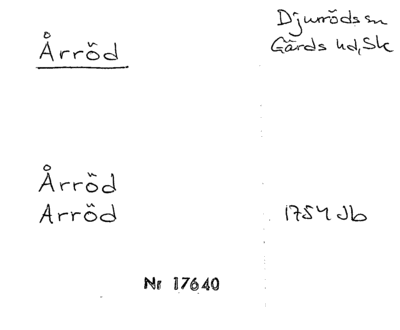 Årröd
Djurröds sn
Gärds hd, Sk
Årröd
Arröd
1754 Jb
Nr 17640